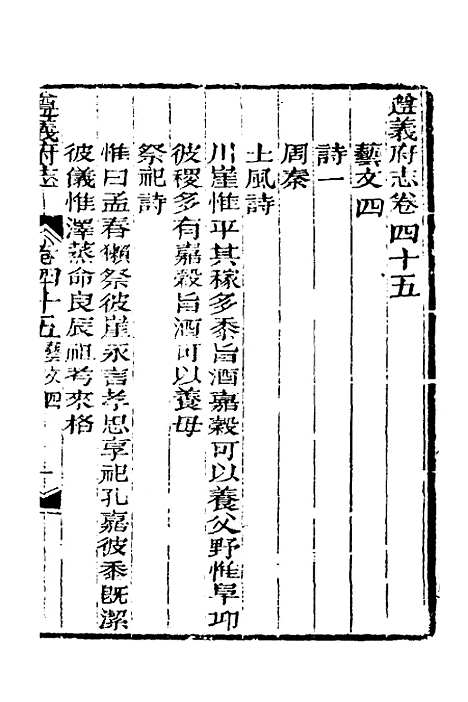 遵義府志卷四十五
藝文四
詩一
周秦
土風詩
川崖惟平其稼多黍旨酒嘉穀可以養父野惟阜邱
彼稷多有嘉穀旨酒可以養母
祭祀詩
惟曰孟春獺祭彼崖永言孝思享祀孔嘉彼黍既潔
彼儀惟澤蒸命良辰祖考來格
遵義府志
卷四十五藝文四
一